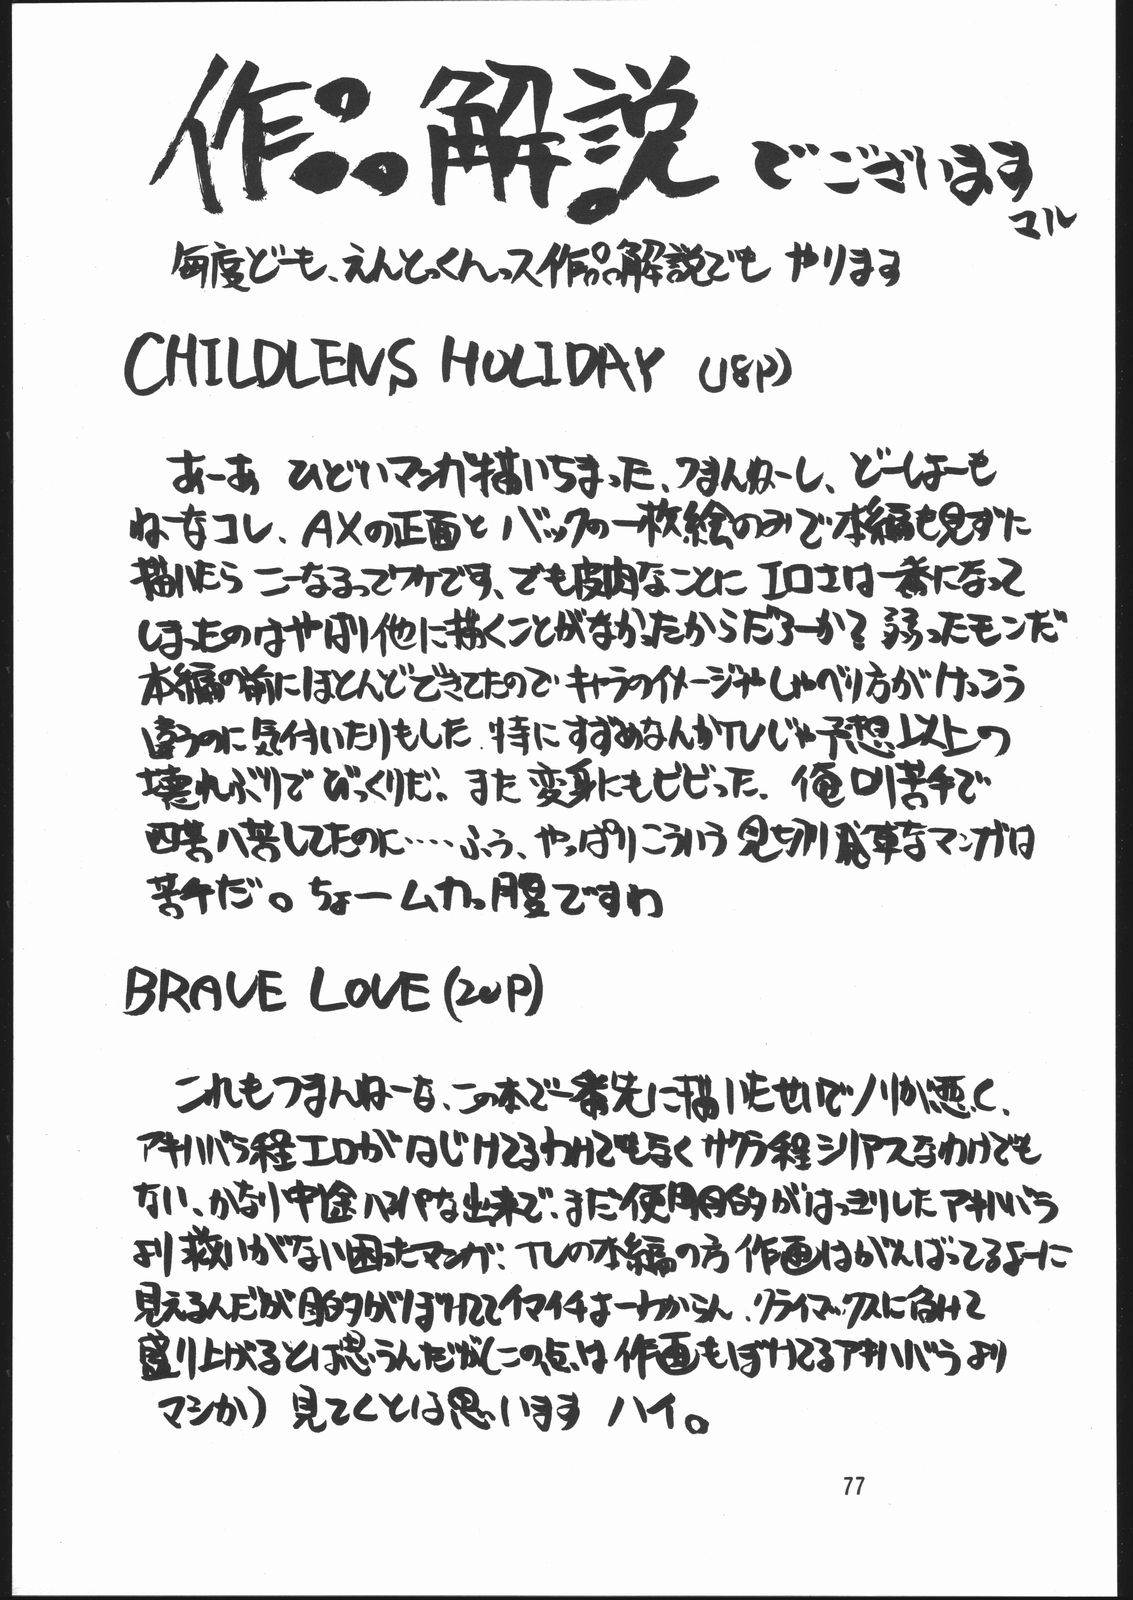 作品解説でございます
マル
毎度どーも、えんとっくんっス作品解説でも やります
CHILDLENS HOLIDAY (18P)
あーあ ひどいマンガ描いちまった、つまんねーし、どーしよーも
ねーなコレ、AXの正面とバックの一枚絵のみで本編も見ずに
描いたら こーなるってワケです、でも皮肉なことに エロさは一番になって
しまったのはやはり他に描くことがなかったからだろーか？ 弱ったモンだ
本編の前にほとんどできてたので キャラのイメージやしゃべり方がけっこう
違うのに気付いたりもした 特にすずめなんかTVじゃ予想以上の
壊れぶりでびっくりだ。また変身にもビビった、俺ロリ苦手で
四苦八苦してたのに‥‥ふう、やっぱりこういう見切り発車なマンガは
苦手だ。ちょームカっ腹ですわ
BRAVE LOVE (20P)
これもつまんねーな、この本で一番先に描いたせいでノリが悪く、
アキハバラ程エロがはじけてるわけでもなく サクラ程シリアスなわけでも
ない、かなり中途ハンパな出来で、まだ使用目的がはっきりしたアキハバラ
より救いがない困ったマンガ、TVの本編の方 作画はがんばってるよーに
見えるんだが目的がぼけててイマイチよーわからん、クライマックスに向けて
盛り上げるとは思うんだが(この点は作画もぼけてるアキハバラより
マシか) 見てくとは思います ハイ。
77